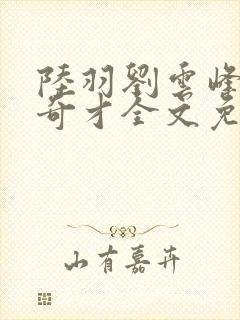 陸羽劉雲峰
奇才全文免
山有嘉卉